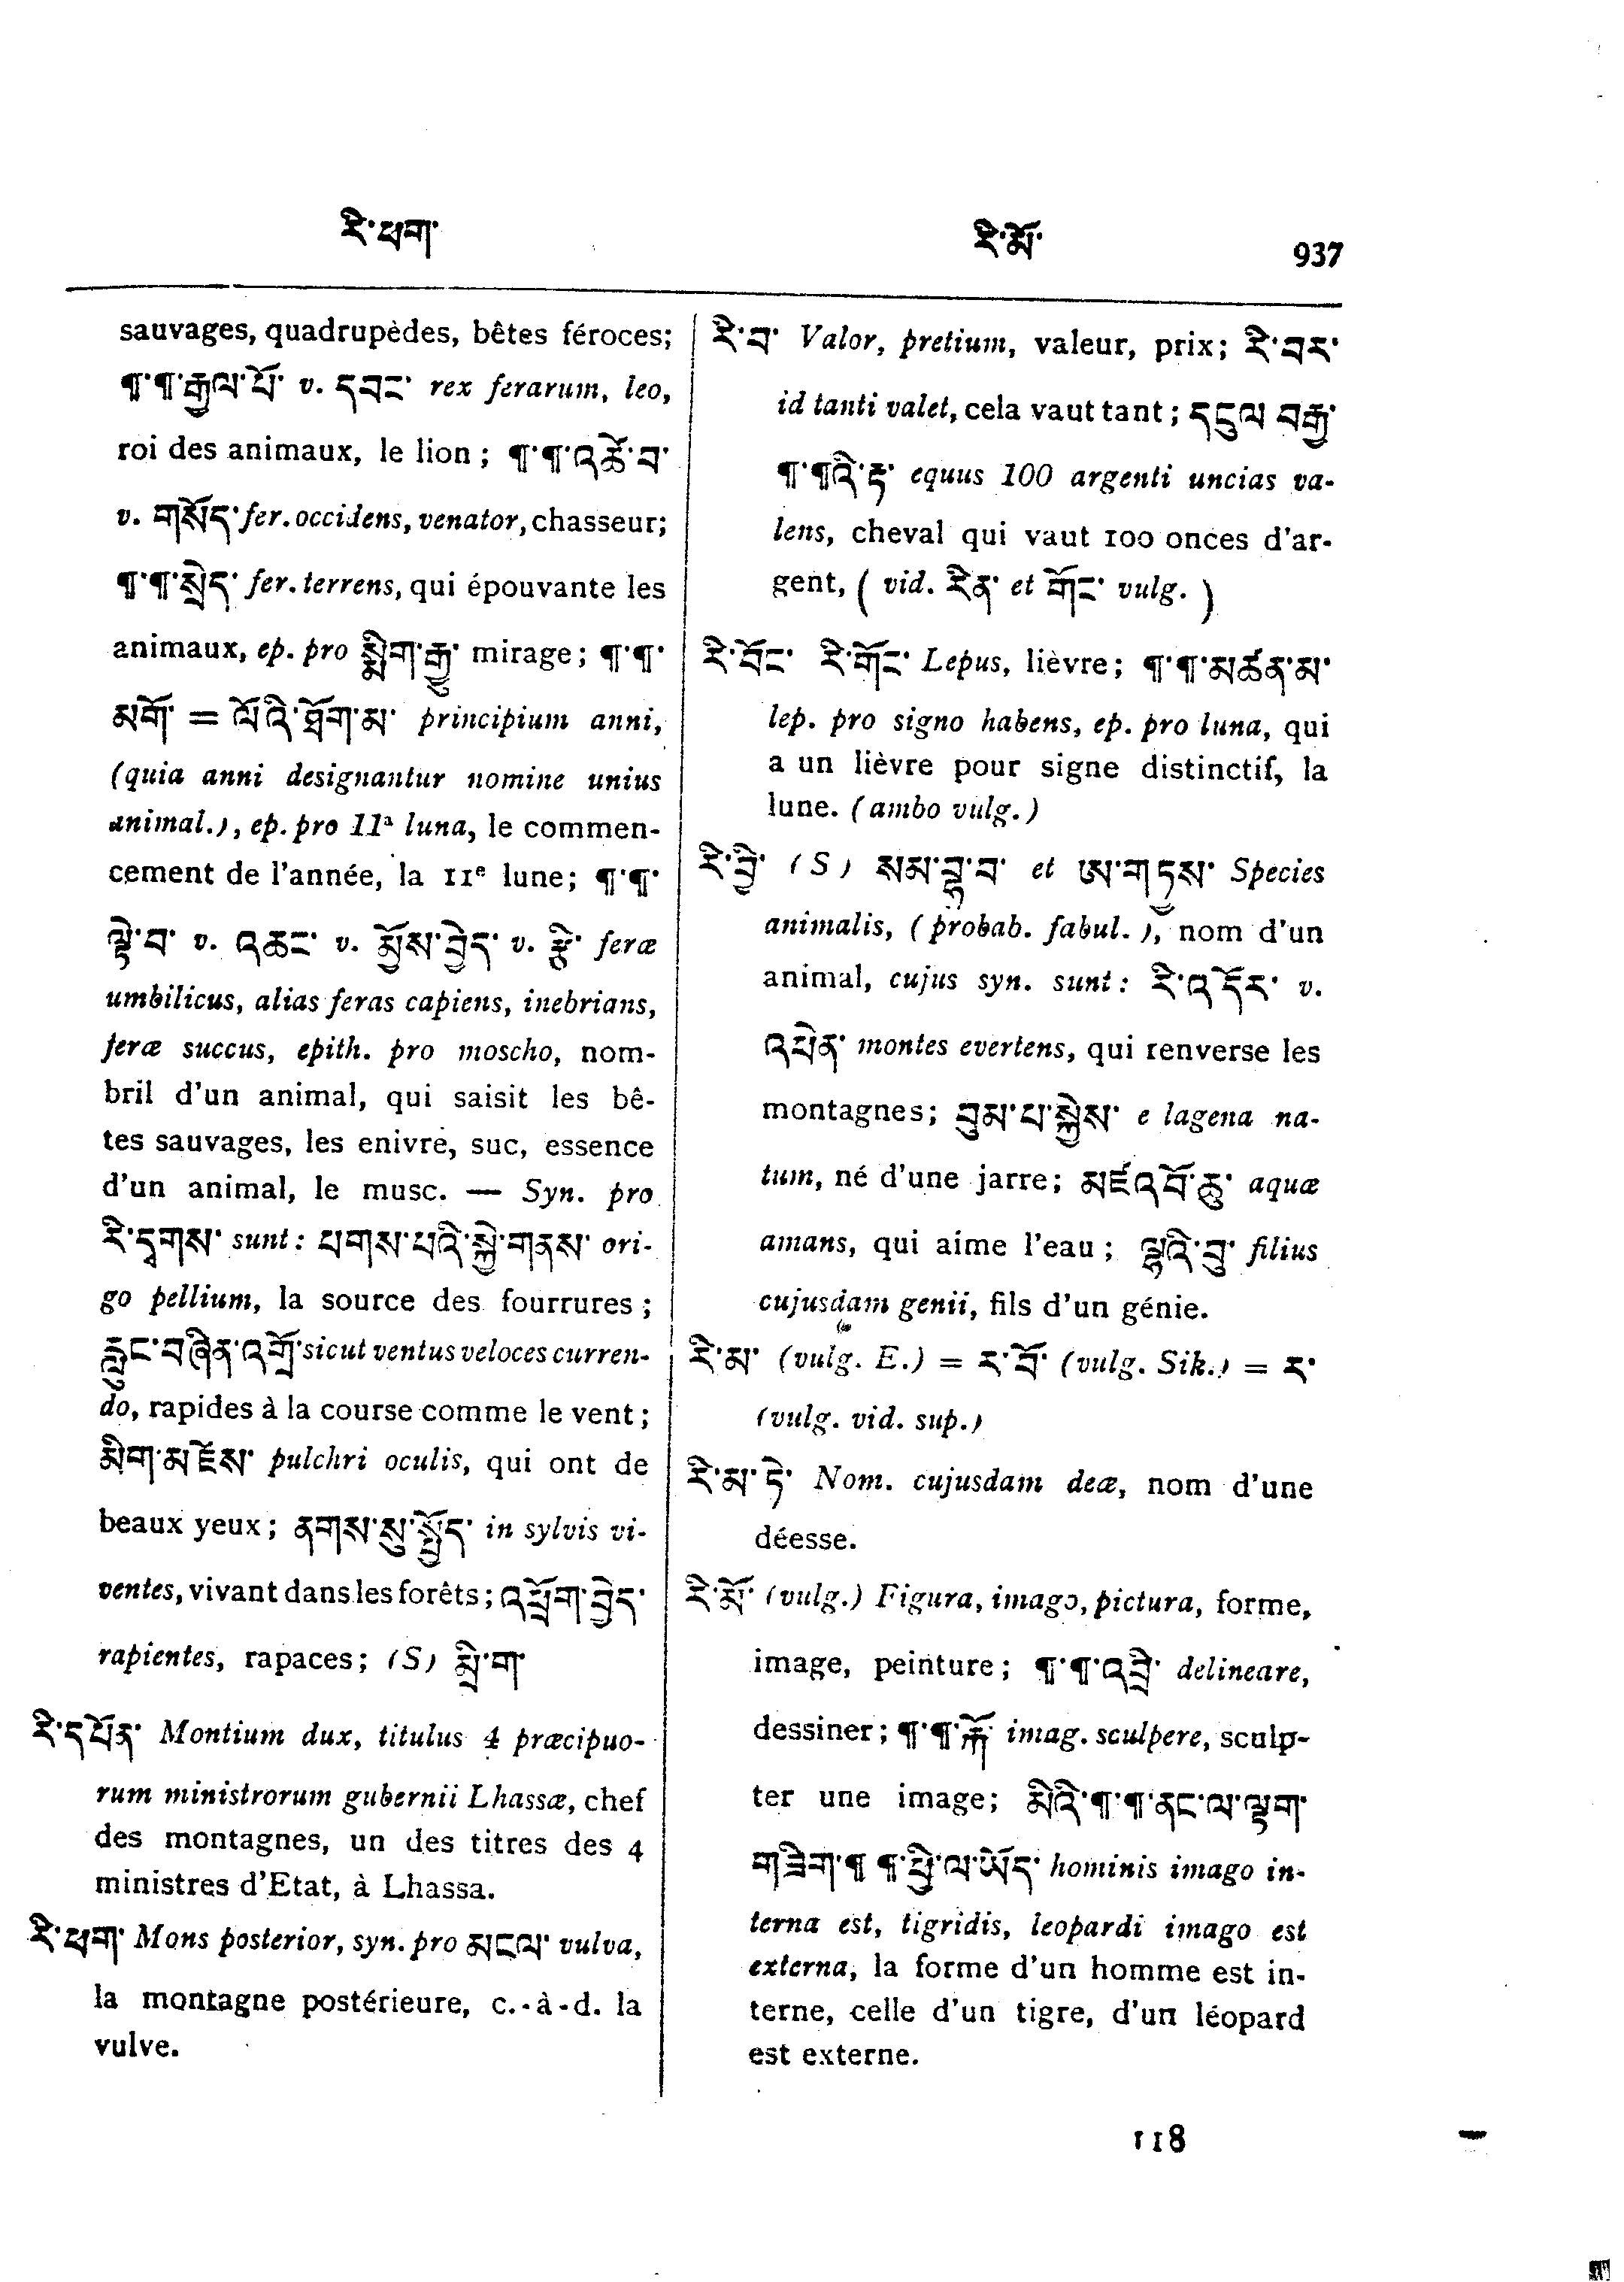 རི་ཕག་
རི་མོ་
937
sauvages, quadrupèdes, bêtes féroces;
¶་¶་རྒྱལ་པོ་ v. དབང་ rex ferarum, leo,
roi des animaux, le lion; ¶་¶་འཚོ་བ་
v. གསོད་ fer. occidens, venator, chasseur;
¶་¶་སྲེད་ fer. terrens, qui épouvante les
animaux, ep. pro སྨིག་རྒྱུ་ mirage; ¶་¶་
མགོ་ = ལོའི་ཐོག་མ་ principium anni,
(quia anni designantur nomine unius
animal.), ep. pro 11ª luna, le commen-
cement de l'année, la 11ᵉ lune; ¶་¶་
ལྟེ་བ་ v. འཆང་ v. མྱོས་བྱེད་ v. རྩི་ feræ
umbilicus, alias feras capiens, inebrians,
feræ succus, epith. pro moscho, nom-
bril d'un animal, qui saisit les bê-
tes sauvages, les enivre, suc, essence
d'un animal, le musc. — Syn. pro
རི་དྭགས་ sunt: པགས་པའི་སྐྱེ་གནས་ ori-
go pellium, la source des fourrures;
རླུང་བཞིན་འགྲོ་ sicut ventus veloces curren-
do, rapides à la course comme le vent;
མིག་མཛེས་ pulchri oculis, qui ont de
beaux yeux; ནགས་སུ་སྤྱོད་ in sylvis vi-
ventes, vivant dans les forêts; འཕྲོག་བྱེད་
rapientes, rapaces; (S) མྲི་ག་
རི་དཔོན་ Montium dux, titulus 4 præcipuo-
rum ministrorum gubernii Lhassæ, chef
des montagnes, un des titres des 4
ministres d'Etat, à Lhassa.
རི་ཕག་ Mons posterior, syn. pro མངལ་ vulva,
la montagne postérieure, c.-à-d. la
vulve.
རི་བ་ Valor, pretium, valeur, prix; རི་བར་
id tanti valet, cela vaut tant; དངུལ་བརྒྱ་
¶་¶འི་རྟ་ equus 100 argenti uncias va-
lens, cheval qui vaut 100 onces d'ar-
gent, (vid. རིན་ et གོང་ vulg.)
རི་བོང་ རི་གོང་ Lepus, lièvre; ¶་¶་མཚན་མ་
lep. pro signo habens, ep. pro luna, qui
a un lièvre pour signe distinctif, la
lune. (ambo vulg.)
རི་བྱི་ (S) སམ་བྷ་བ་ et ཨ་གཏྱས་ Species
animalis, (probab. fabul.), nom d'un
animal, cujus syn. sunt: རི་འདོར་ v.
འཕེན་ montes evertens, qui renverse les
montagnes; བུམ་པ་སྐྱེས་ e lagena na-
tum, né d'une jarre; མཛའ་བོ་ཆུ་ aquæ
amans, qui aime l'eau; ལྷའི་བུ་ filius
cujusdam genii, fils d'un génie.
རི་མ་ (vulg. E.) = ར་བོ་ (vulg. Sik.) = ར་
(vulg. vid. sup.)
རི་མ་ཏེ་ Nom. cujusdam deæ, nom d'une
déesse.
རི་མོ་ (vulg.) Figura, imago, pictura, forme,
image, peinture; ¶་¶་འབྲི་ delineare,
dessiner; ¶་¶་རྐོ་ imag. sculpere, sculp-
ter une image; མིའི་¶་¶་ནང་ལ་ལྟག་
གཟིག་¶ ¶་ཕྱི་ལ་ཡོད་ hominis imago in-
terna est, tigridis, leopardi imago est
externa, la forme d'un homme est in-
terne, celle d'un tigre, d'un léopard
est externe.
118